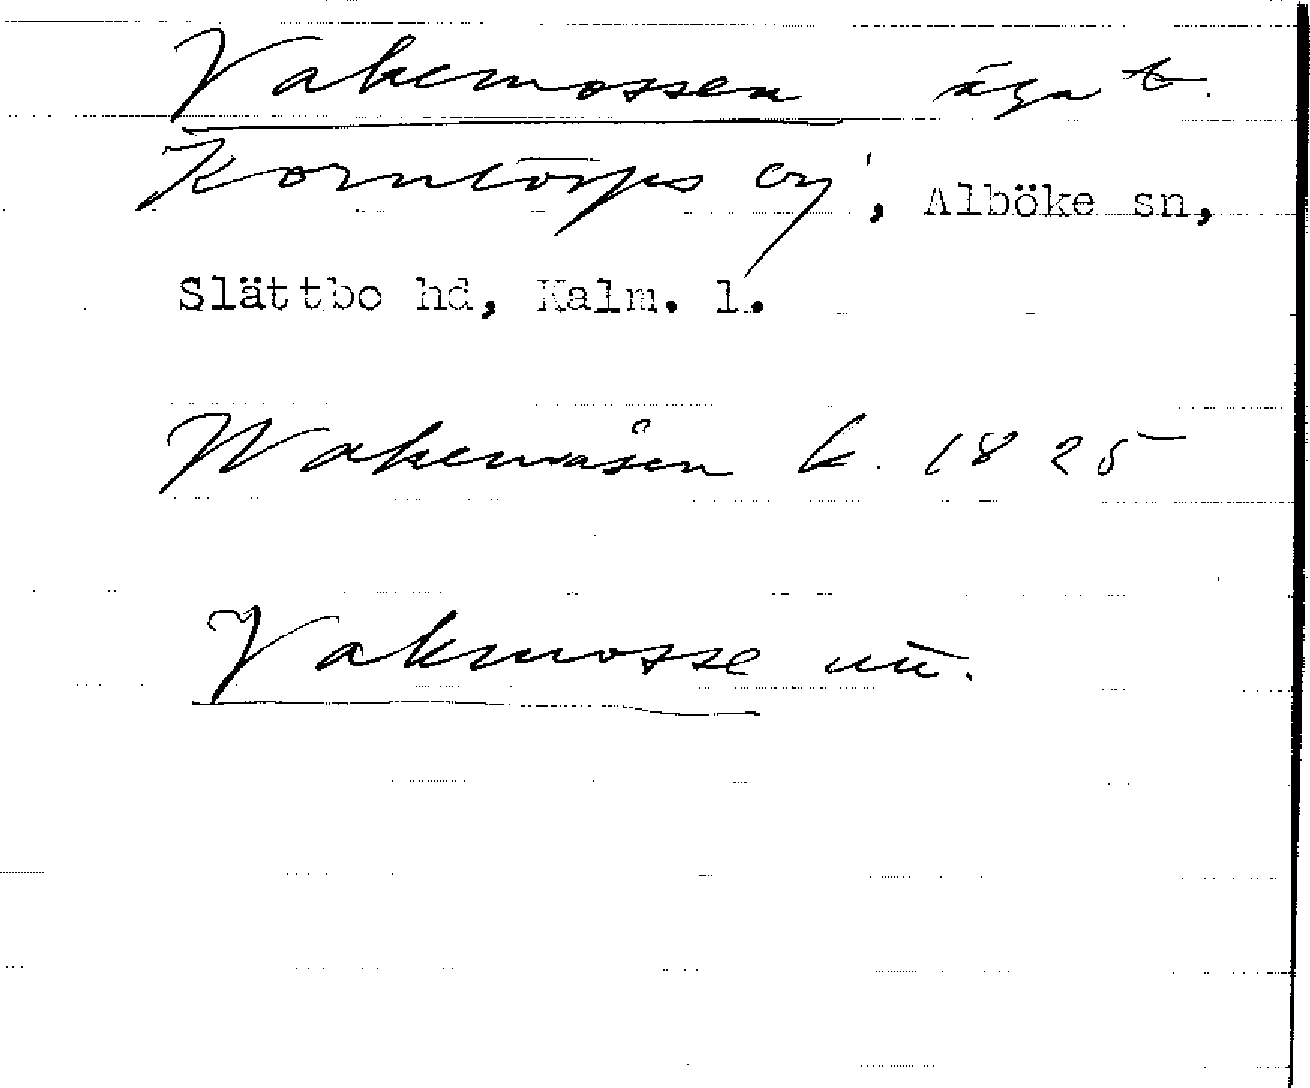 Vakemossen äga t.
Korntorps by, Alböke sn,
Slättbo hd, Kalm. l.
Wakemåsen k. 1825
Vakmosse nu.